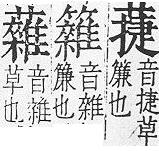 蓵
音捷草
簾也
音雜
簾也
䕹
音雜
草也